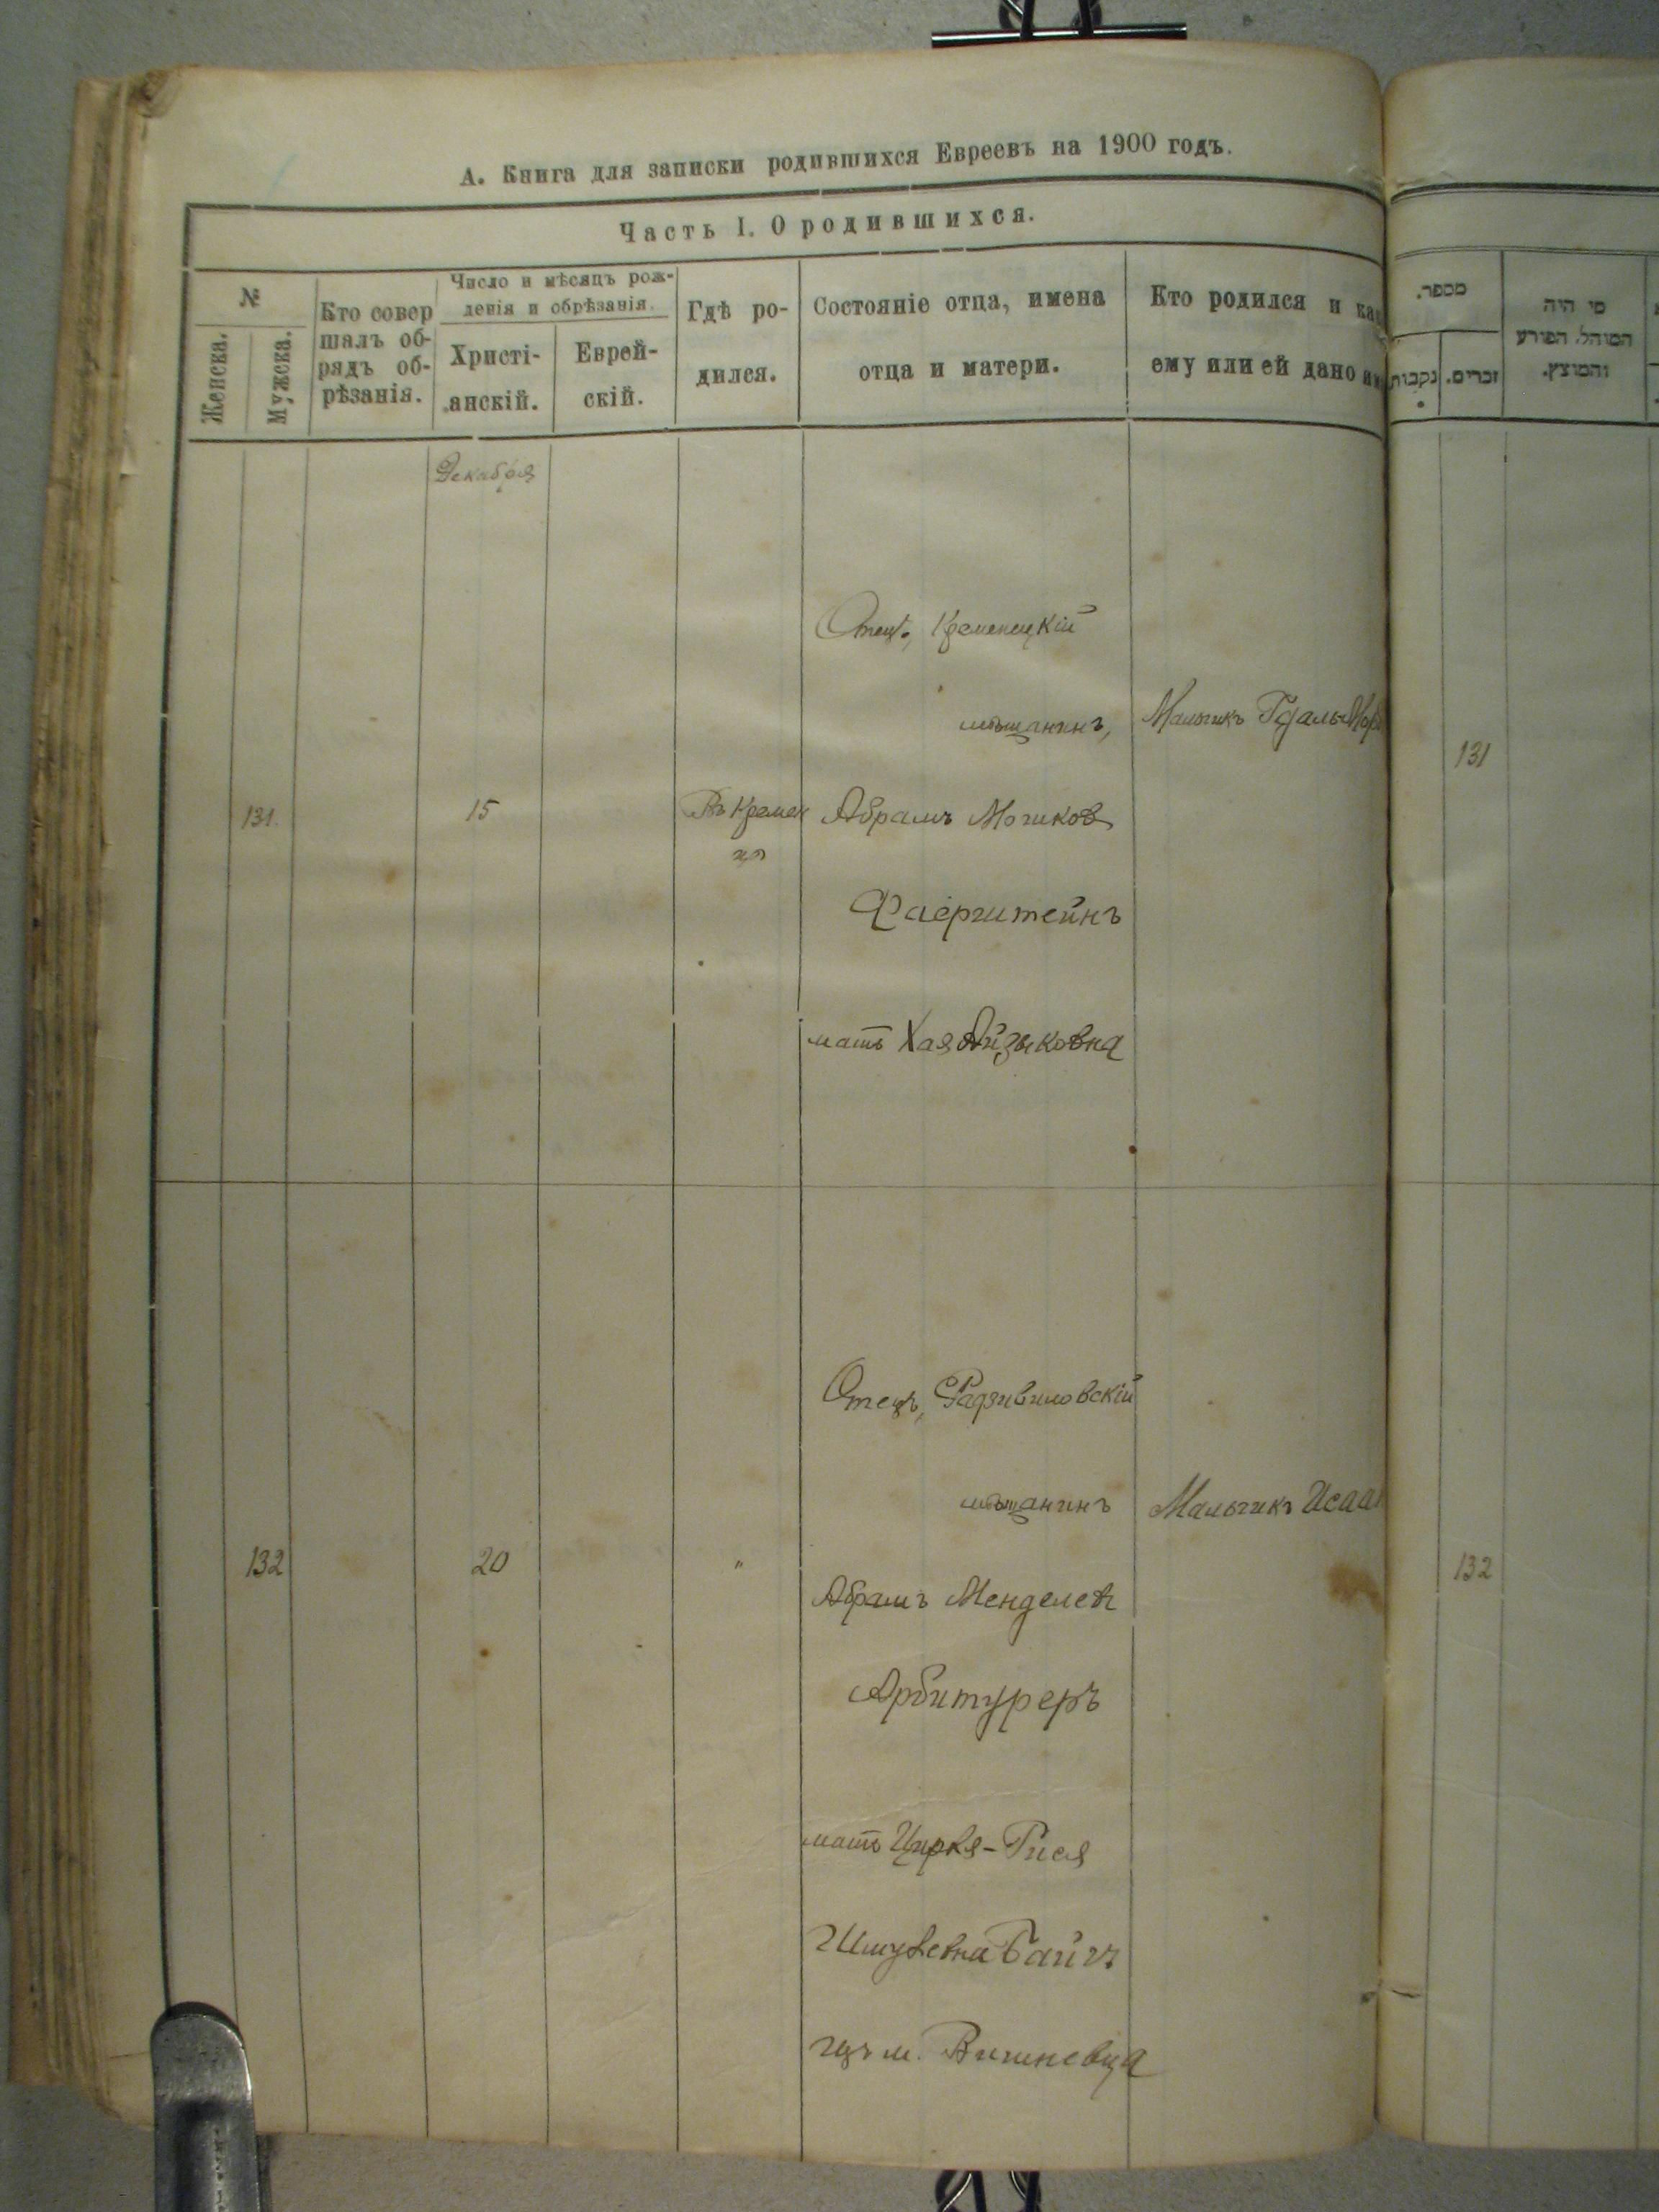 А. Книга для записки родившихся Евреевъ на 1900 годъ.
Часть I. О родившихся.
№
Женска.
Мужска.
Кто совер
шалъ об-
рядъ об-
рѣзанія.
Число и мѣсяцъ рож-
денія и обрѣзанія.
Христі-
анскій.
Еврей-
скій.
Гдѣ ро-
дился.
Состояніе отца, имена
отца и матери.
Кто родился и как
ему или ей дано им
Декабря
131.
15
Въ Кремен
цѣ
Отецъ, Кременецкій
мѣщанинъ,
Абрамъ Мошков
Фаерштейнъ
мать Хая Айзыковна
Мальчикъ Гдаль
132
20
"
Отецъ, Радзивиловскій
мѣщанинъ
Абрамъ Менделев
Арбитуреръ
мать Цирля-Рися
Шмулевна
изъ м. Вишневца
Мальчикъ Исаа
מספר.
נקבות
זכרים.
מי היה
המוהל, הפורע
והמוצץ.
131
132